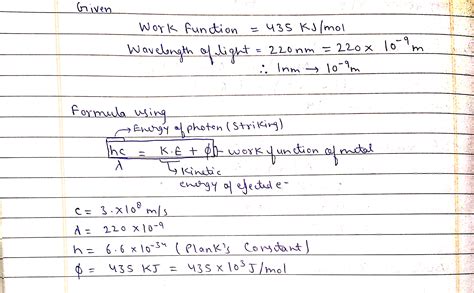 Given
Work Function = 435 KJ/mol
Wavelength of light = 220 nm = 220 x 10⁻⁹ m
∴ 1nm → 10⁻⁹ m
Formula using
→ Energy of photon (Striking)
hc/λ = K.E + ϕ → work function of metal
↳ Kinetic
energy of ejected e-
c = 3.x10⁸ m/s
λ = 220 x10⁻⁹
h = 6.6 x 10⁻³⁴ (Plank's Constant)
ϕ = 435 KJ = 435 x 10³ J/mol